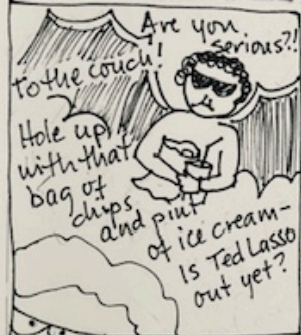 Are you
serious?!
To the couch!
Hole up
with that
bag of
chips
and pint
of ice cream-
Is Ted Lasso
out yet?